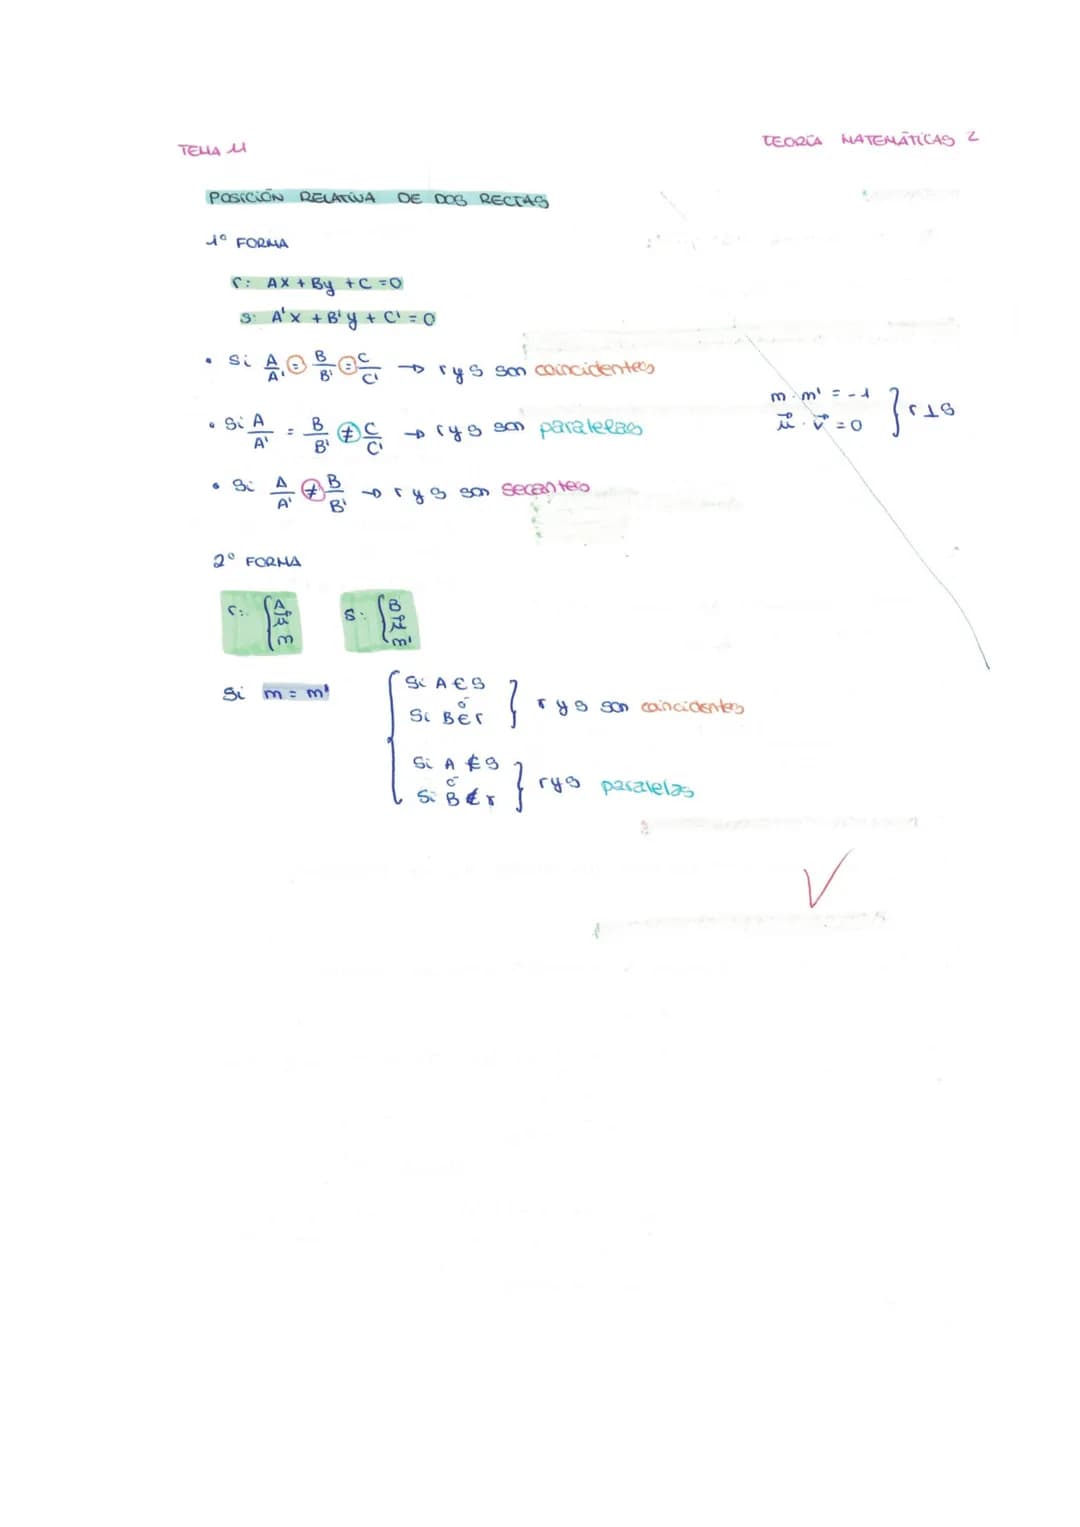 TEMA 11
TEORÍA MATEMÁTICAS 2
POSICIÓN RELATIVA DE DOS RECTAS
1º FORMA
r: Ax + By + C = 0
s: A'x + B'y + C' = 0
• Si A/A' = B/B' = C/C' → r y s son coincidentes
• Si A/A' = B/B' ≠ C/C' → r y s son paralelas
• Si A/A' ≠ B/B' → r y s son secantes
m · m' = -1
u⃗ · v⃗ = 0 } r ⊥ s
2º FORMA
r: { A u⃗ m
s: { B u⃗ m'
Si m = m'
Si A ∈ s
ó
Si B ∈ r } r y s son coincidentes
Si A ∉ s
ó
Si B ∉ r } r y s paralelas